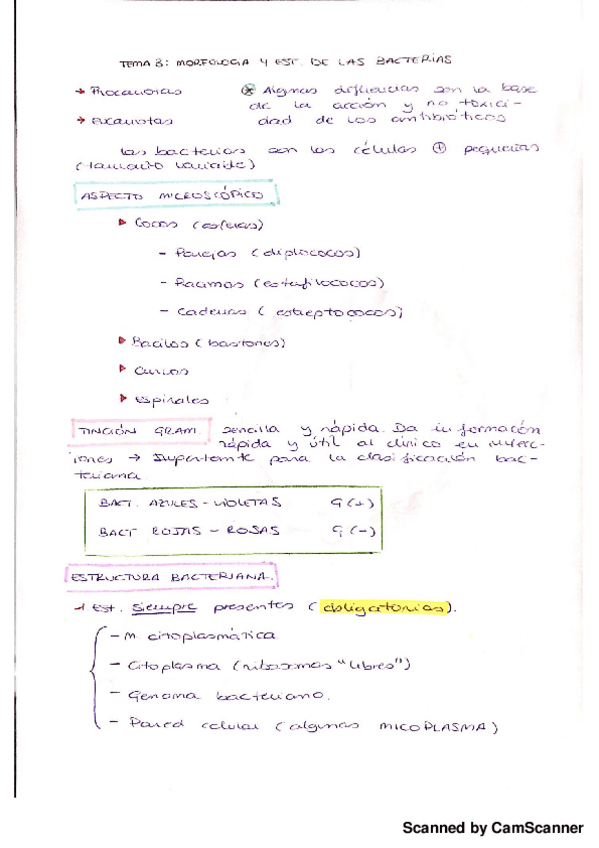 TEMA 3: MORFOLOGIA Y EST. DE LAS BACTERIAS
→ Procariotas
→ Eucariotas
* Algunas diferencias son la base
de la acción y no toxici-
dad de los antibióticos
Las bacterias son las células ⊕ pequeñas
(tamaño variable)
ASPECTO MICROSCÓPICO
▸ Cocos (esferas)
- Parejas (diplococos)
- Racimos (estafilococos)
- Cadenas (estreptococos)
▸ Bacilos (bastones)
▸ Curvos
▸ Espirales
TINCIÓN GRAM sencilla y rápida. Da información
rápida y útil al clínico en infecc-
iones → Importante para la clasificación bac-
teriana
BACT. AZULES - VIOLETAS G(+)
BACT ROJAS - ROSAS G(-)
ESTRUCTURA BACTERIANA.
→ Est. siempre presentes (obligatorias).
- M. citoplasmática
- Citoplasma (ribosomas "libres")
- Genoma bacteriano.
- Pared celular (algunas MICOPLASMA)
Scanned by CamScanner